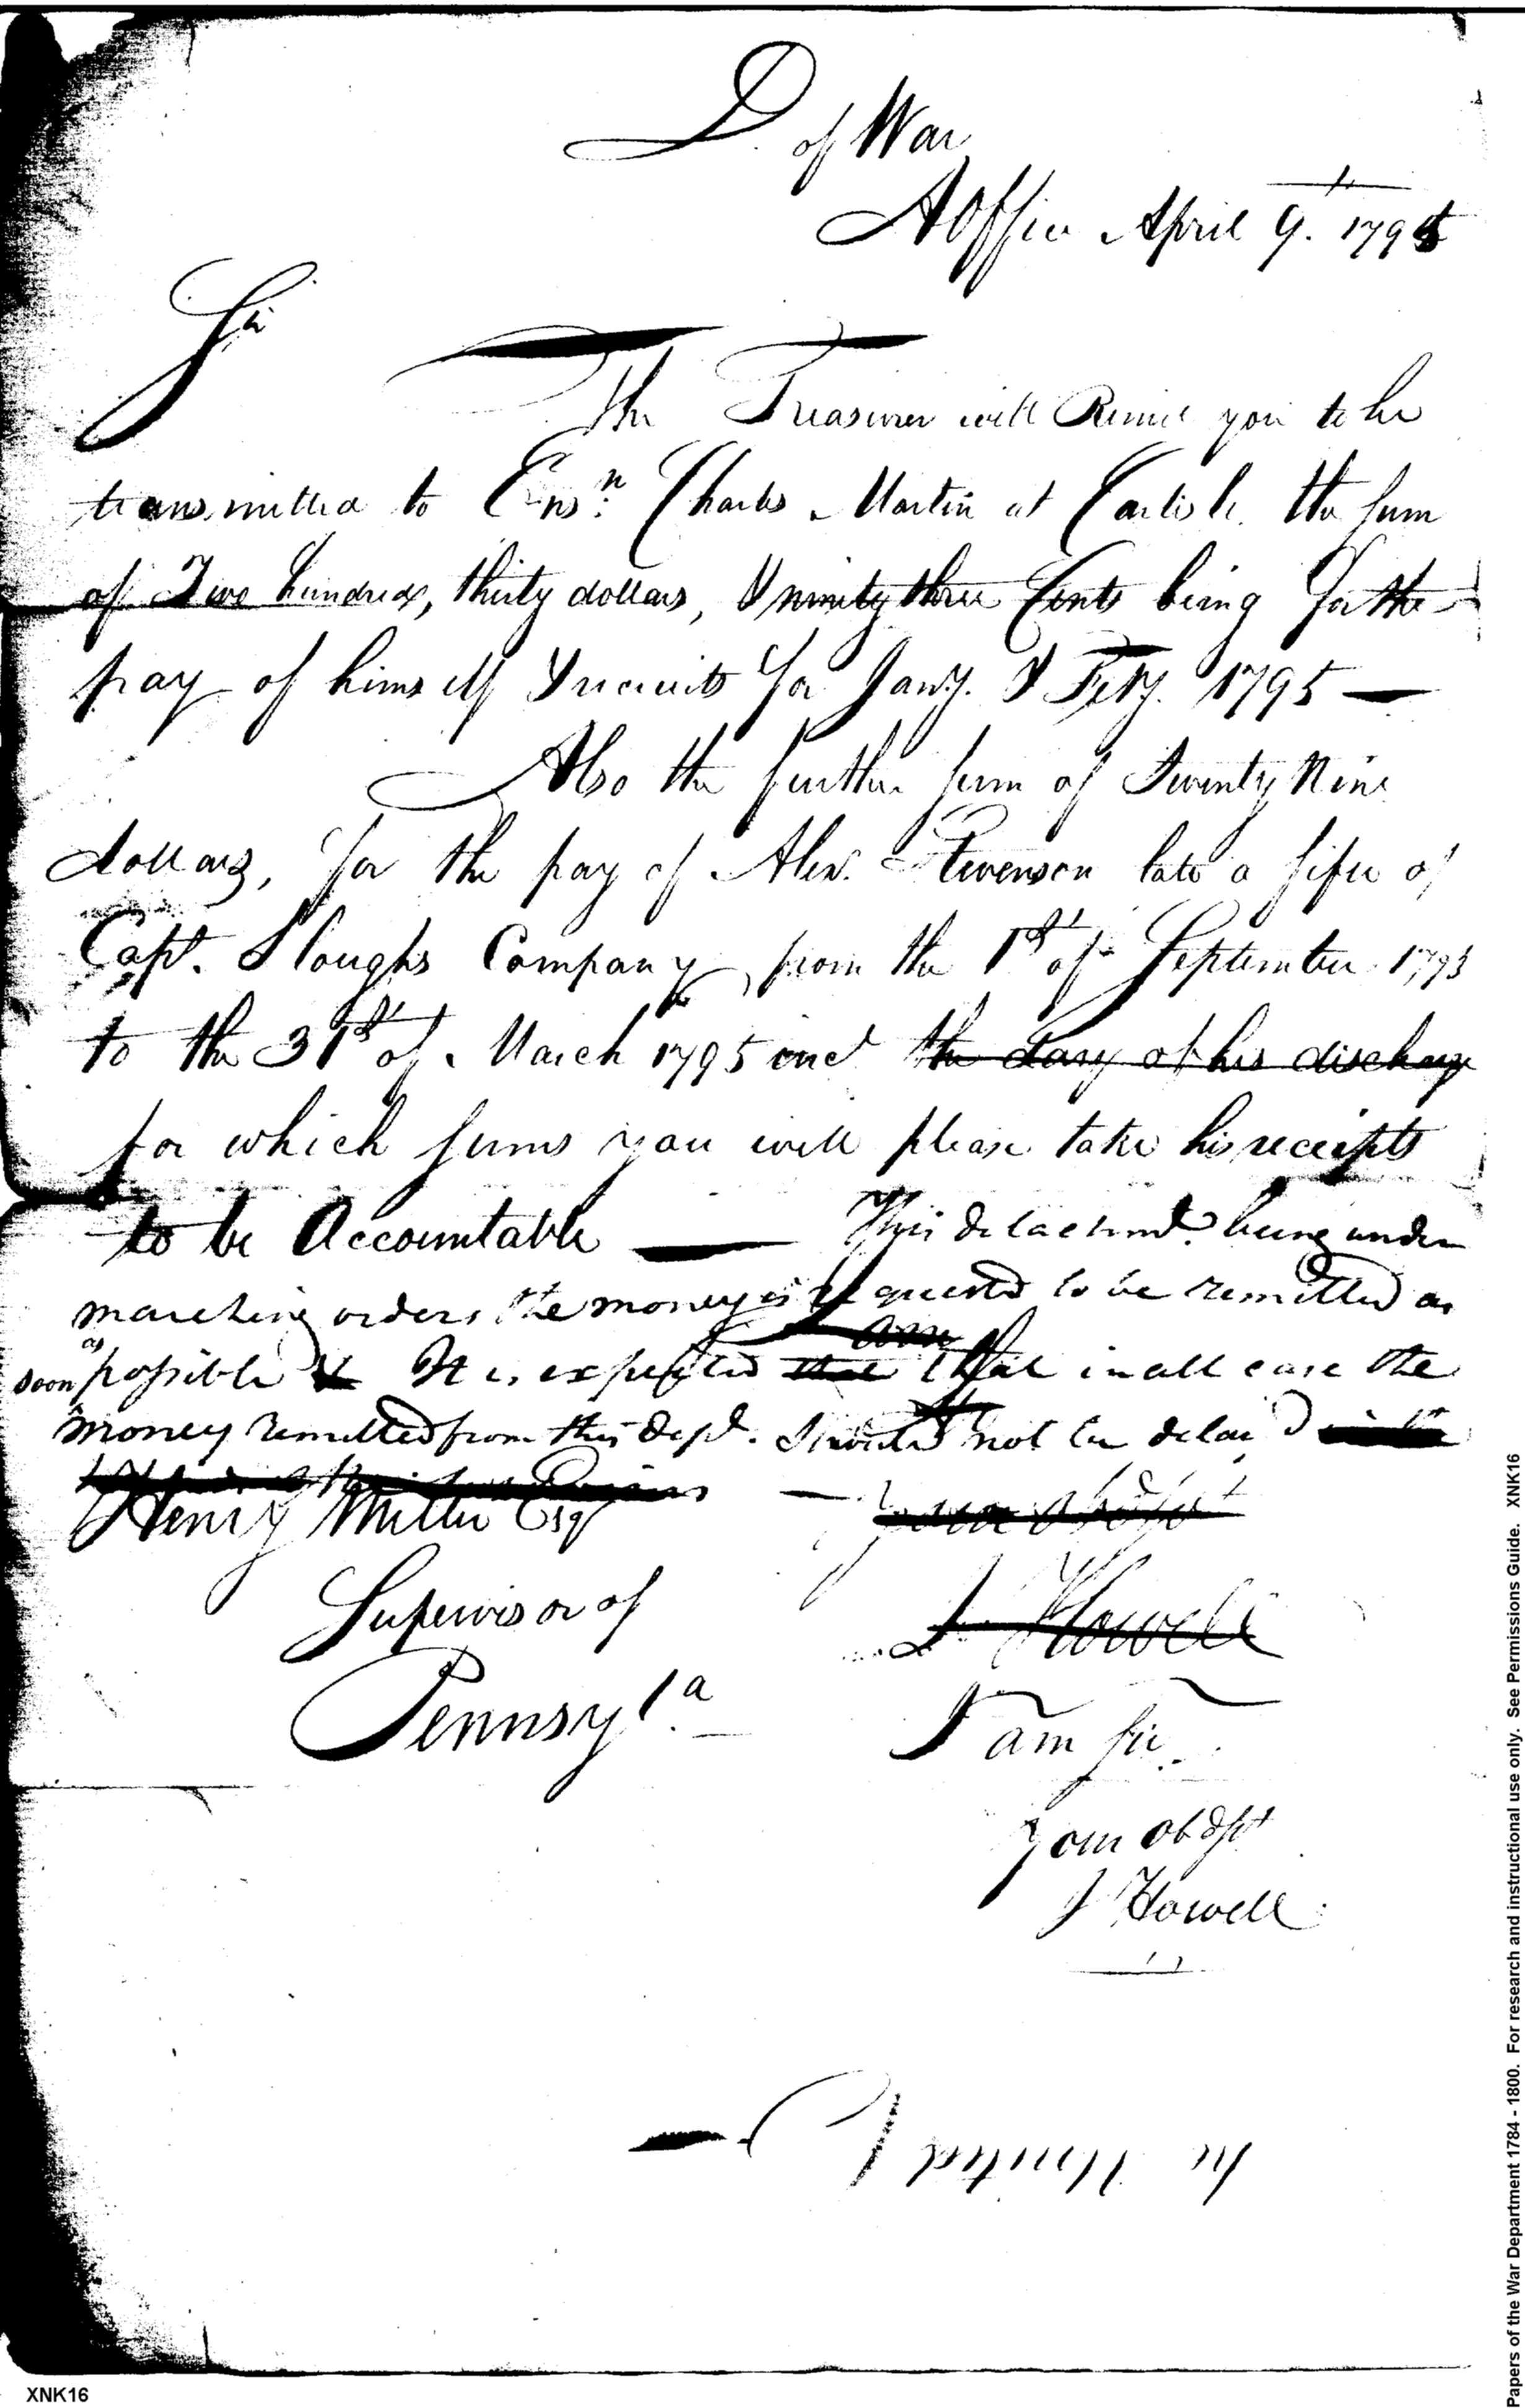 D. of War
A Office April 9th. 1795
Sir
The Treasurer will Remit you to be
transmitted to Ensn. Charles Martin at Carlisle the sum
of Two hundred, thirty dollars, & ninety three Cents being for the
pay of himself & recruits for Jany. & Feby. 1795 —
Also the further sum of Twenty Nine
dollars, for the pay of Alexr. Stevenson late a fifer of
Capt. Sloughs Company, from the 1st of September 1793
to the 31st of March 1795 incl the day of his discharge
for which sums you will please take his receipts
to be Accountable — This detachmt. being under
marching orders the money is requested to be remitted as
soon as possible & It is expected that in all case the
money remitted from this Dept. should not be delai'd
Henry Miller Esq
Supervisor of
Pennsyla.
J Howell
I am Sir
Your Obdt
J Howell